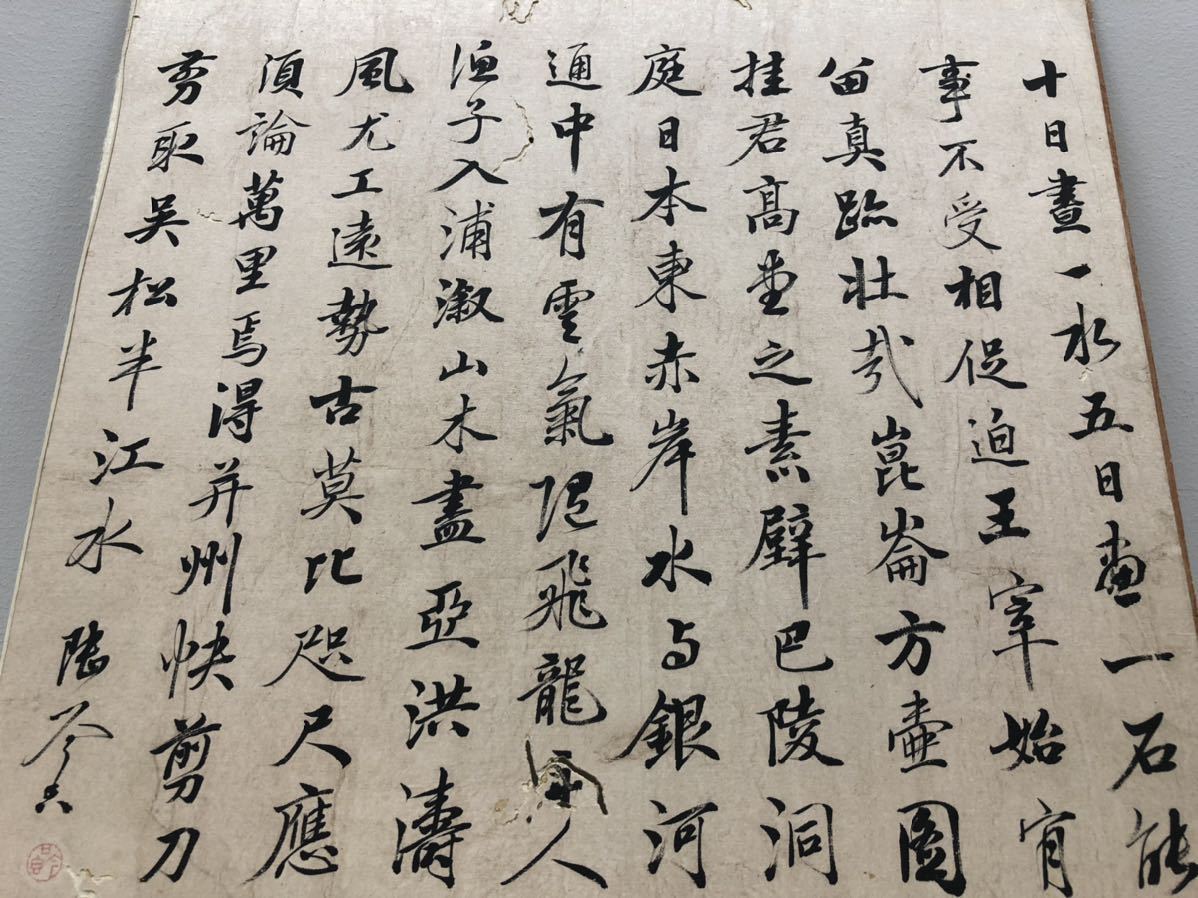 十日畫一水五日畫一石能
事不受相促迫王宰始肯
留真跡壯哉崑崙方壺圖
挂君高堂之素壁巴陵洞
庭日本東赤岸水与銀河
通中有雲氣隨飛龍舟人
漁子入浦溆山木盡亞洪濤
風尤工遠勢古莫比咫尺應
須論萬里焉得并州快剪刀
剪取吳松半江水 陸